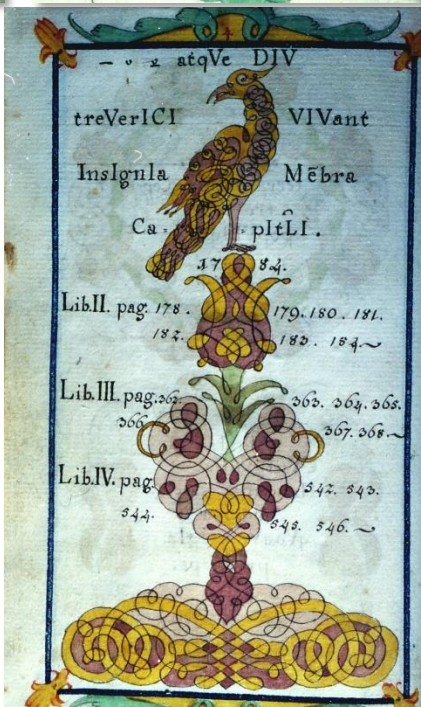 4
– υ & atqVe DIV
treVerICI VIVant
InsIgnIa Mẽbra
Ca= =pItLI.
17 84.
Lib.II. pag. 178. 179. 180. 181.
182. 183. 184.~
Lib.III. pag. 362. 363. 364. 365.
366. 367. 368.~
Lib.IV. pag. 542. 543.
544. 545. 546.~